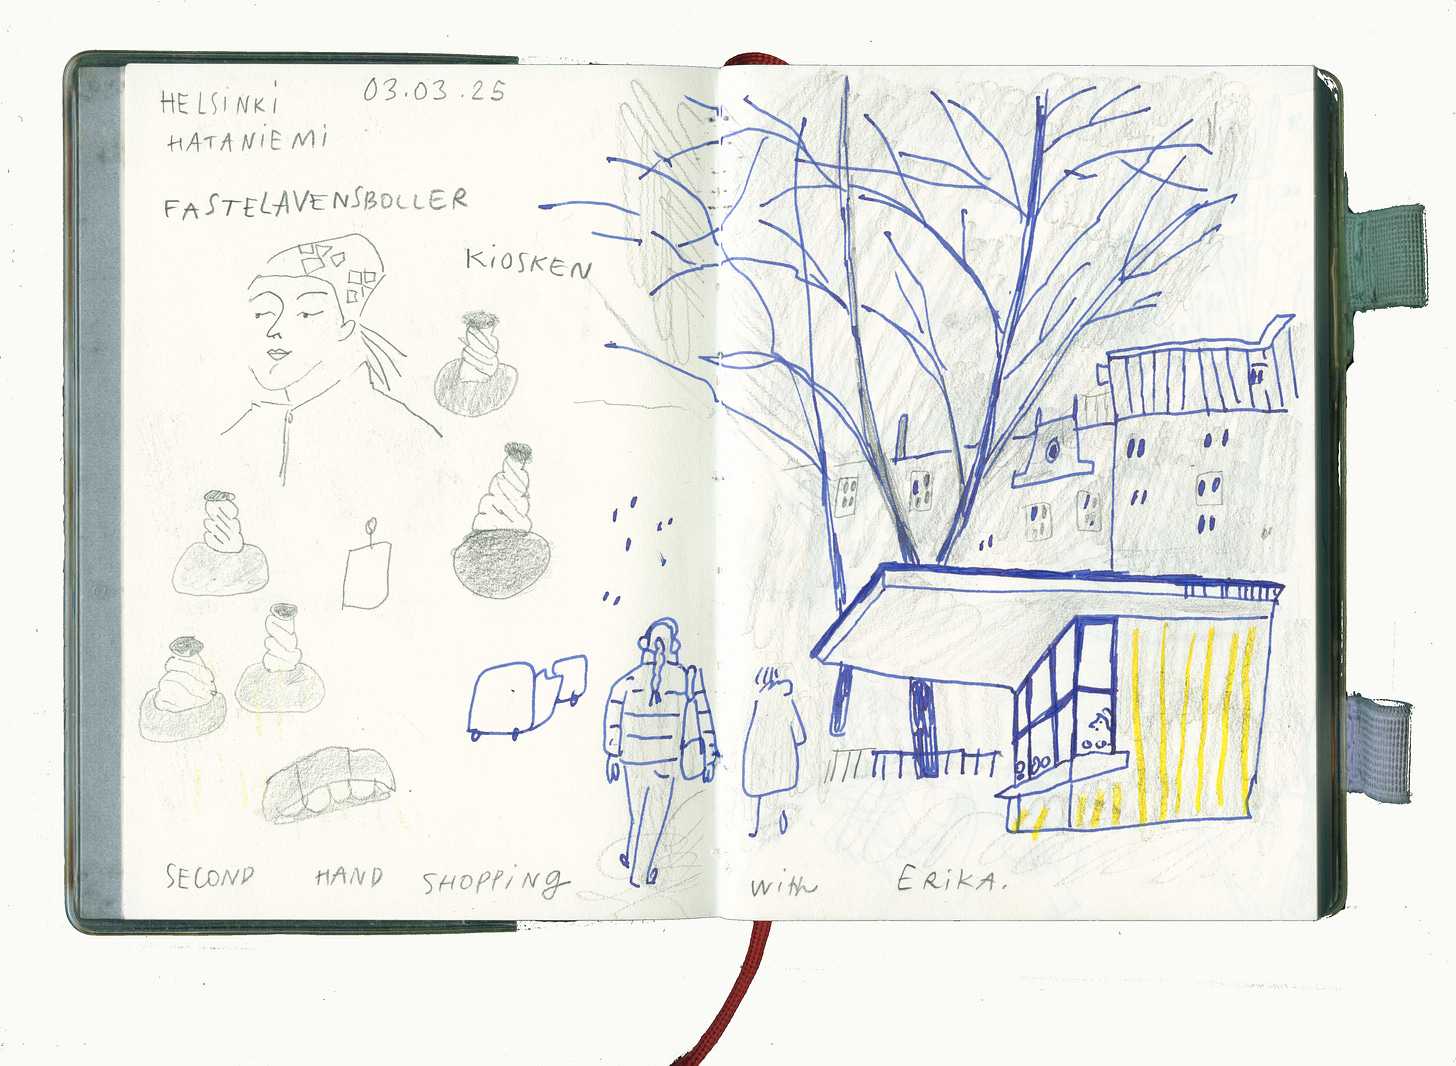 HELSINKI
03.03.25
HATANIEMI
FASTELAVENSBOLLER
KIOSKEN
SECOND HAND SHOPPING with ERIKA.